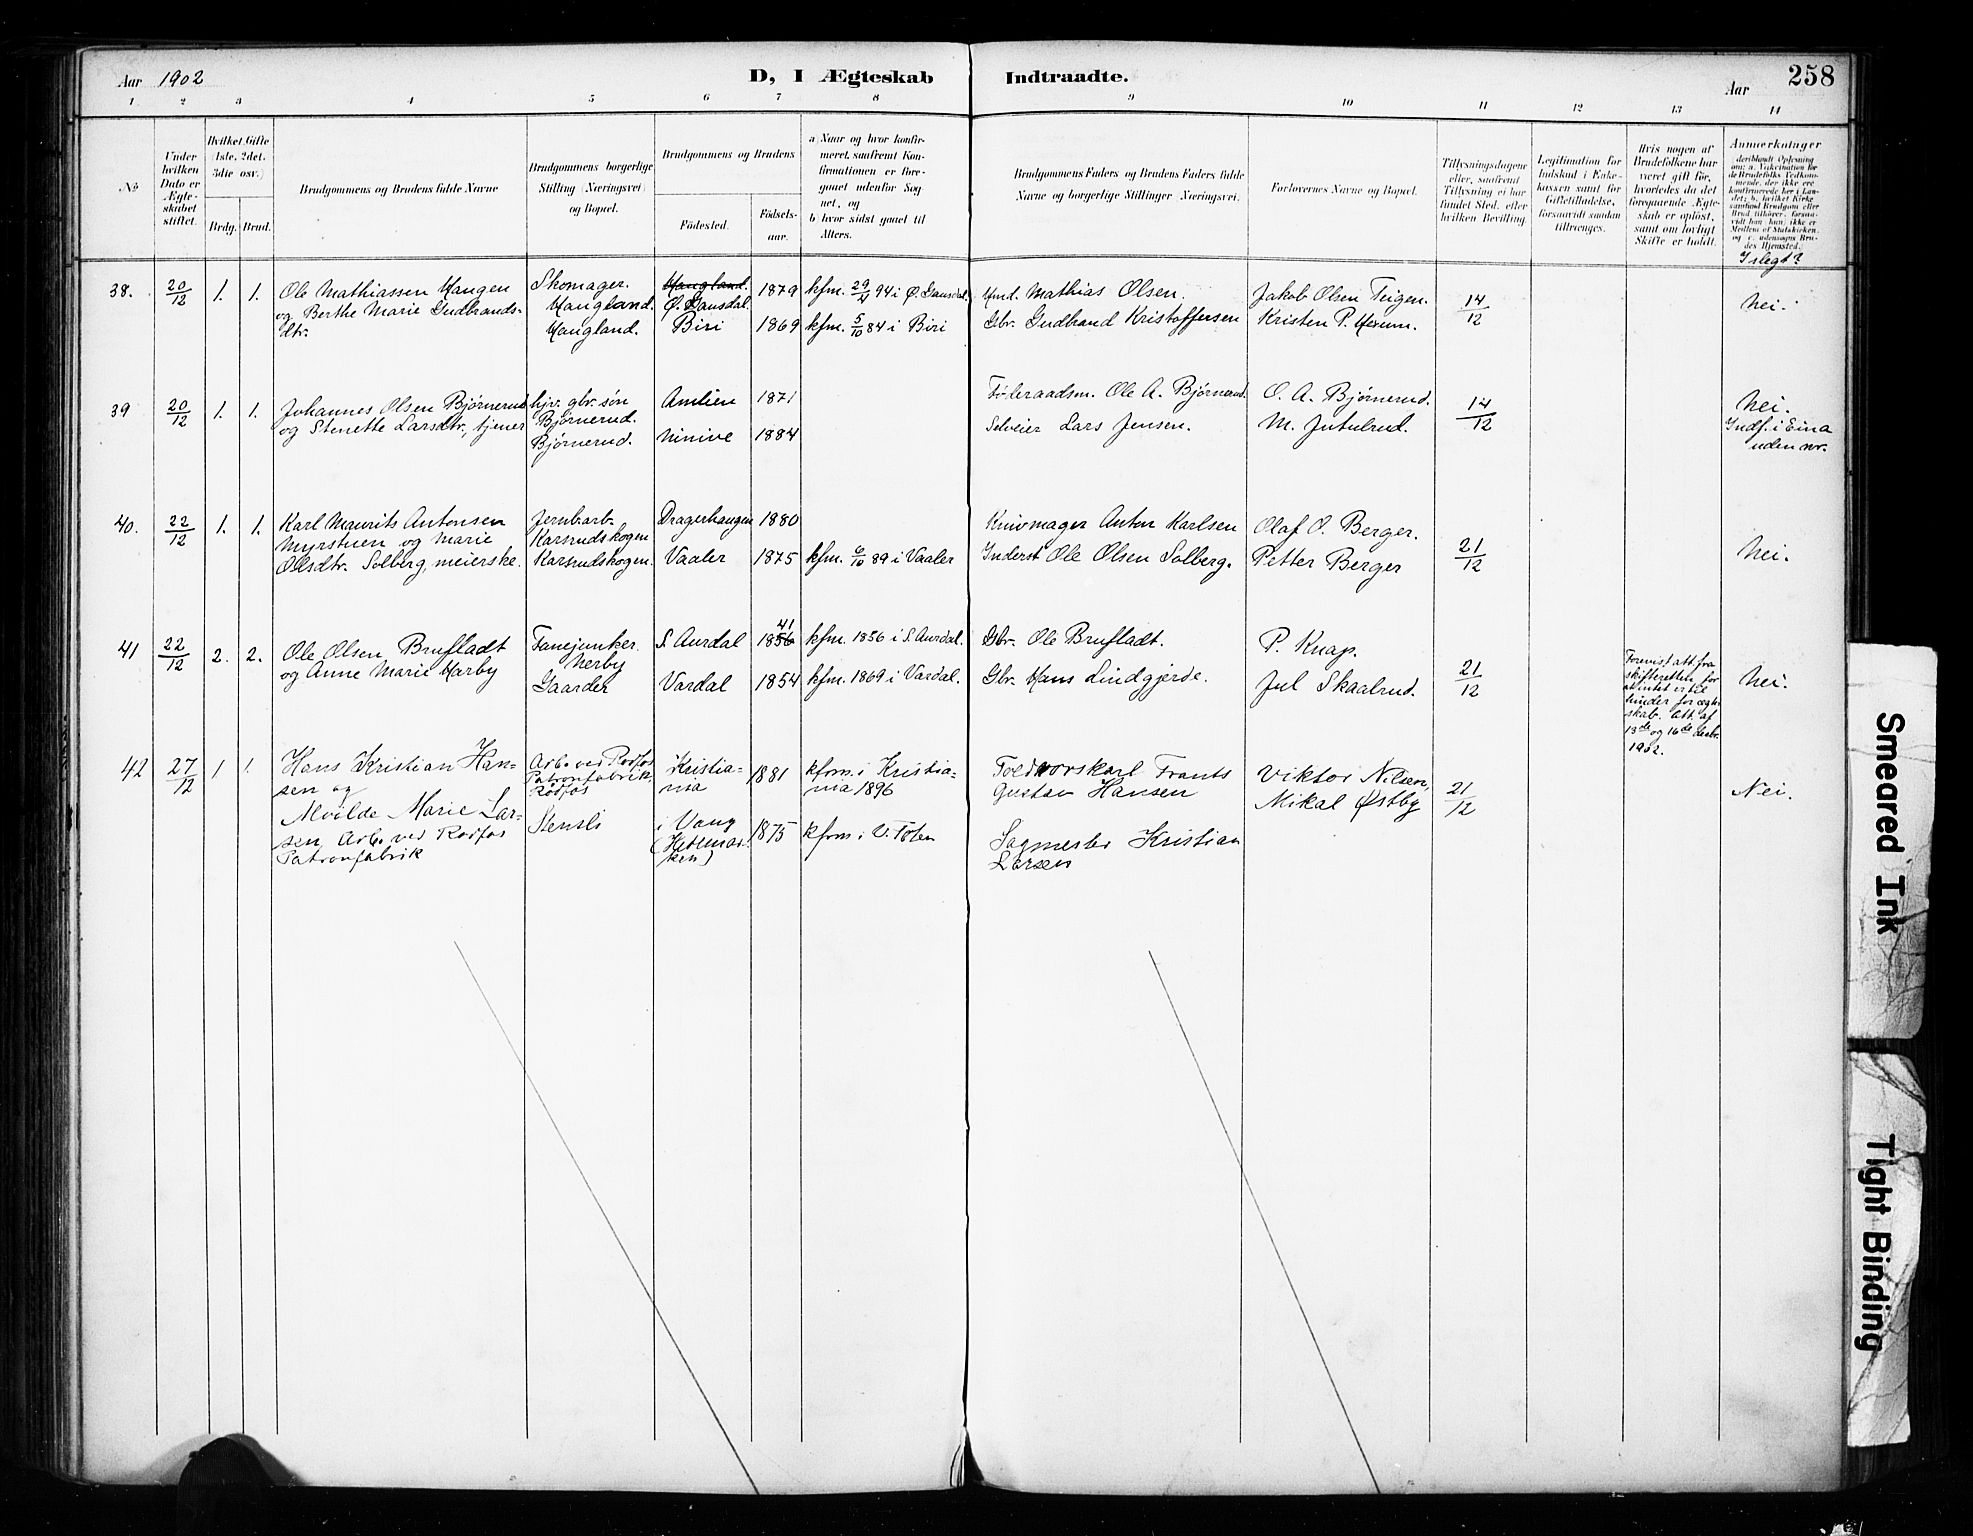 Aar 1902
D, I Ægteskab Indtraadte.
Aar
258
1 2 3 4 5 6 7 8 9 10 11 12 13 14
№
Under hvilken Dato er Ægteskabet stiftet.
Hvilket Gifte (1ste, 2det, 3die osv.)
Brdg. Brud.
Brudgommens og Brudens fulde Navne
Brudgommens borgerlige Stilling (Næringsvei) og Bopæl.
Brudgommens og Brudens
Fødested.
Fødsels-aar.
a) Naar og hvor konfirmeret, saafremt Konfirmationen er foregaaet udenfor Sognet, og
b) hvor sidst gaaet til Alters.
Brudgommens Faders og Brudens Faders fulde Navne og borgerlige Stillinger (Næringsvei.
Forlovernes Navne og Bopæl.
Tillysningsdagene eller, saafremt Tillysning ei har fundet Sted, efter hvilken Bevilling.
Legitimation for Indskud i Enkekassen samt for Giftetilladelse, forsaavidt saadan tiltrænges.
Hvis nogen af Brudefolkene har været gift før, hvorledes da det foregaaende Ægteskab er opløst, samt om lovligt Skifte er holdt.
Anmerkninger
Islegt?
38. 20/12 1. 1.
Ole Mathiassen Haugen
og Berthe Marie Gudbrands-
dtr.
Skomager.
Haugland.
Haugland.
Haugland.
Ø. Gausdal.
Biri
1879
1869
kfm. 29/9 94 i Ø. Gausdal.
kfm. 5/10 84 i Biri
Hmd. Mathias Olsen.
Gbr. Gudbrand Kristoffersen
Jakob Olsen Teigen.
Kristen P. Hexum.
14/12
Nei.
39 20/12 1. 1.
Johannes Olsen Bjørnerud
og Stenette Larsdtr, tjener
hjv. gbr. søn
Bjørnerud.
Bjørnerud.
Amlien
Ninive
1871
1884
Føderaadsm. Ole A. Bjørnerud.
Selveier Lars Jensen.
O. A. Bjørnerud.
M. Jutulrud.
14/12
Nei.
Indf. i Eina
uden nr.
40. 22/12 1. 1.
Karl Maurits Antonsen
Myrstuen og Marie
Olsdtr. Solberg, meierske.
Jernbarb.
Karsrudskogen
Karsrudskogen.
Dragerhaugen
Vaaler
1880
1875
kfm. 6/10 89 i Vaaler
Knivmager Anton Karlsen
Inderst Ole Olsen Solberg.
Olaf O. Berger.
Petter Berger
21/12
Nei.
41 22/12 2. 2.
Ole Olsen Brufladt
og Anne Marie Harby
Fanejunker.
Nerby
Gaarder
S. Aurdal
Vardal
41
1856
1854
kfm. 1856 i S. Aurdal.
kfm. 1869 i Vardal.
Gbr. Ole Brufladt.
Gbr. Hans Lindgjerde.
P. Knap.
Jul Skaalrud.
21/12
Forevist att. fra
skifteretten for
at intet er til
hinder for ægte-
skab. Att. af
13de og 16de Decbr.
1902.
Nei.
42 27/12 1 1.
Hans Kristian Han-
sen og
Alvilde Marie Lar-
sen, Arb. ved Rødfos
Patronfabrik
Arb. ved Rødfos
Patronfabrik,
Rødfos
Stensli
Kristia-
nia
i Vang
(Hedemar-
ken)
1881
1875
kfrm. i Kristia-
nia 1896
kfrm. i V. Toten
Toldvorskarl Frants
Gustav Hansen
Sagmester Kristian
Larsen
Viktor Nilsen,
Mikal Østby
21/12
Nei.
Smeared Ink
Tight Binding